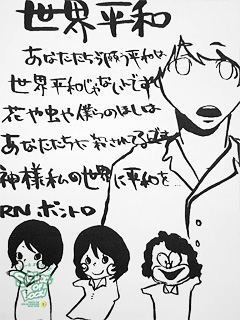 世界平和
あなたたちが願う平和は
世界平和じゃないです
花や虫や僕らのほしは
あなたたちに殺されてるです
神様私の世界に平和を…
RN ポントロ
School of Lock!